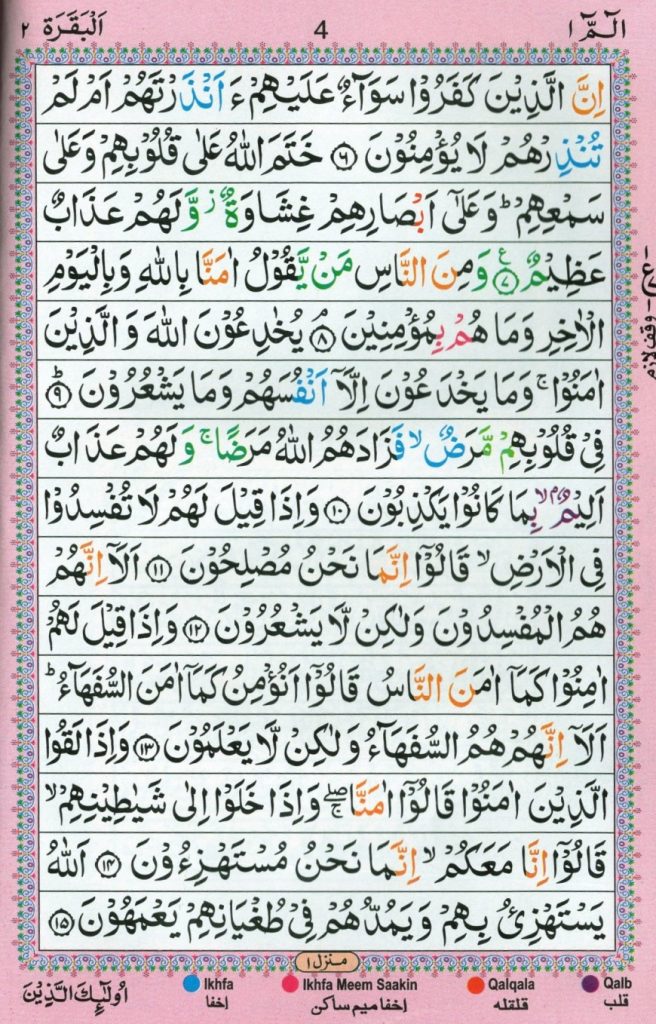 الٓمّٓ ١ 4 اَلْبَقَرَة ٢
اِنَّ الَّذِيْنَ كَفَرُوْا سَوَآءٌ عَلَيْهِمْ ءَاَنْذَرْتَهُمْ اَمْ لَمْ
تُنْذِرْهُمْ لَا يُؤْمِنُوْنَ ﴿۶﴾ خَتَمَ اللّٰهُ عَلٰى قُلُوْبِهِمْ وَعَلٰى
سَمْعِهِمْ ؕ وَعَلٰٓى اَبْصَارِهِمْ غِشَاوَةٌ ز وَّلَهُمْ عَذَابٌ
عَظِيْمٌ ﴿۷﴾ ع وَمِنَ النَّاسِ مَنْ يَّقُوْلُ اٰمَنَّا بِاللّٰهِ وَبِالْيَوْمِ
الْاٰخِرِ وَمَا هُمْ بِمُؤْمِنِيْنَ ﴿۸﴾ۘ يُخٰدِعُوْنَ اللّٰهَ وَالَّذِيْنَ
اٰمَنُوْا ۚ وَمَا يَخْدَعُوْنَ اِلَّآ اَنْفُسَهُمْ وَمَا يَشْعُرُوْنَ ﴿۹﴾ؕ
فِيْ قُلُوْبِهِمْ مَّرَضٌ ۙ فَزَادَهُمُ اللّٰهُ مَرَضًا ۚ وَلَهُمْ عَذَابٌ
اَلِيْمٌۢ ۙ بِمَا كَانُوْا يَكْذِبُوْنَ ﴿۱۰﴾ وَاِذَا قِيْلَ لَهُمْ لَا تُفْسِدُوْا
فِى الْاَرْضِ ۙ قَالُوْٓا اِنَّمَا نَحْنُ مُصْلِحُوْنَ ﴿۱۱﴾ اَلَآ اِنَّهُمْ
هُمُ الْمُفْسِدُوْنَ وَلٰكِنْ لَّا يَشْعُرُوْنَ ﴿۱۲﴾ وَاِذَا قِيْلَ لَهُمْ
اٰمِنُوْا كَمَآ اٰمَنَ النَّاسُ قَالُوْٓا اَنُؤْمِنُ كَمَآ اٰمَنَ السُّفَهَآءُ ؕ
اَلَآ اِنَّهُمْ هُمُ السُّفَهَآءُ وَلٰكِنْ لَّا يَعْلَمُوْنَ ﴿۱۳﴾ وَاِذَا لَقُوا
الَّذِيْنَ اٰمَنُوْا قَالُوْٓا اٰمَنَّا ۖۚ وَاِذَا خَلَوْا اِلٰى شَيٰطِيْنِهِمْ ۙ
قَالُوْٓا اِنَّا مَعَكُمْ ۙ اِنَّمَا نَحْنُ مُسْتَهْزِءُوْنَ ﴿۱۴﴾ اَللّٰهُ
يَسْتَهْزِئُ بِهِمْ وَيَمُدُّهُمْ فِيْ طُغْيَانِهِمْ يَعْمَهُوْنَ ﴿۱۵﴾
ع وقف لازم
منزل ١
Ikhfa Ikhfa Meem Saakin Qalqala Qalb
اُولٰٓئِكَ الَّذِيْنَ إخفا إخفا ميم ساكن قلقله قلب